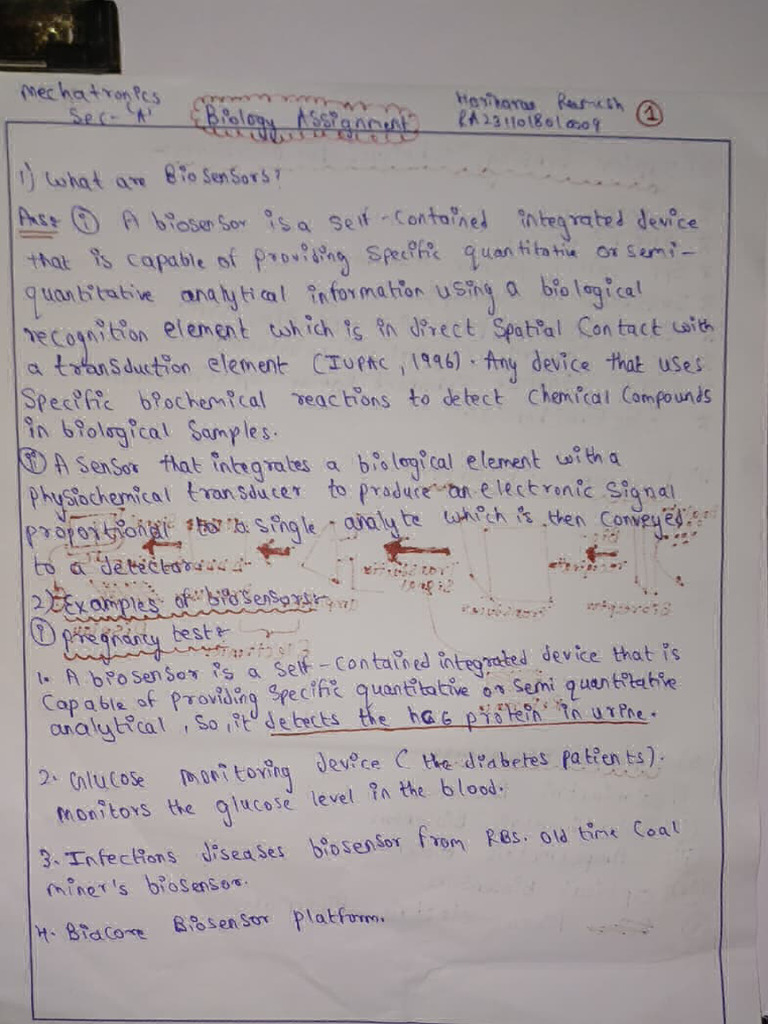 Mechatronics
Sec- 'A'
Biology Assignment
Hariharan Ramesh
RA2311018010009
1
1) What are Biosensors?
Ans: i) A biosensor is a self-contained integrated device
that is capable of providing specific quantitative or semi-
quantitative analytical information using a biological
recognition element which is in direct spatial contact with
a transduction element (IUPAC, 1996). Any device that uses
specific biochemical reactions to detect chemical compounds
in biological samples.
ii) A sensor that integrates a biological element with a
physiochemical transducer to produce an electronic signal
proportional to a single analyte which is then conveyed
to a detector.
2) Examples of biosensors:
i) pregnancy test:
1. A biosensor is a self-contained integrated device that is
capable of providing specific quantitative or semi quantitative
analytical, so, it detects the hCG protein in urine.
2. Glucose monitoring device (the diabetes patients).
monitors the glucose level in the blood.
3. Infections diseases biosensor from RBS. old time coal
miner's biosensor.
4. Biacore Biosensor platform.